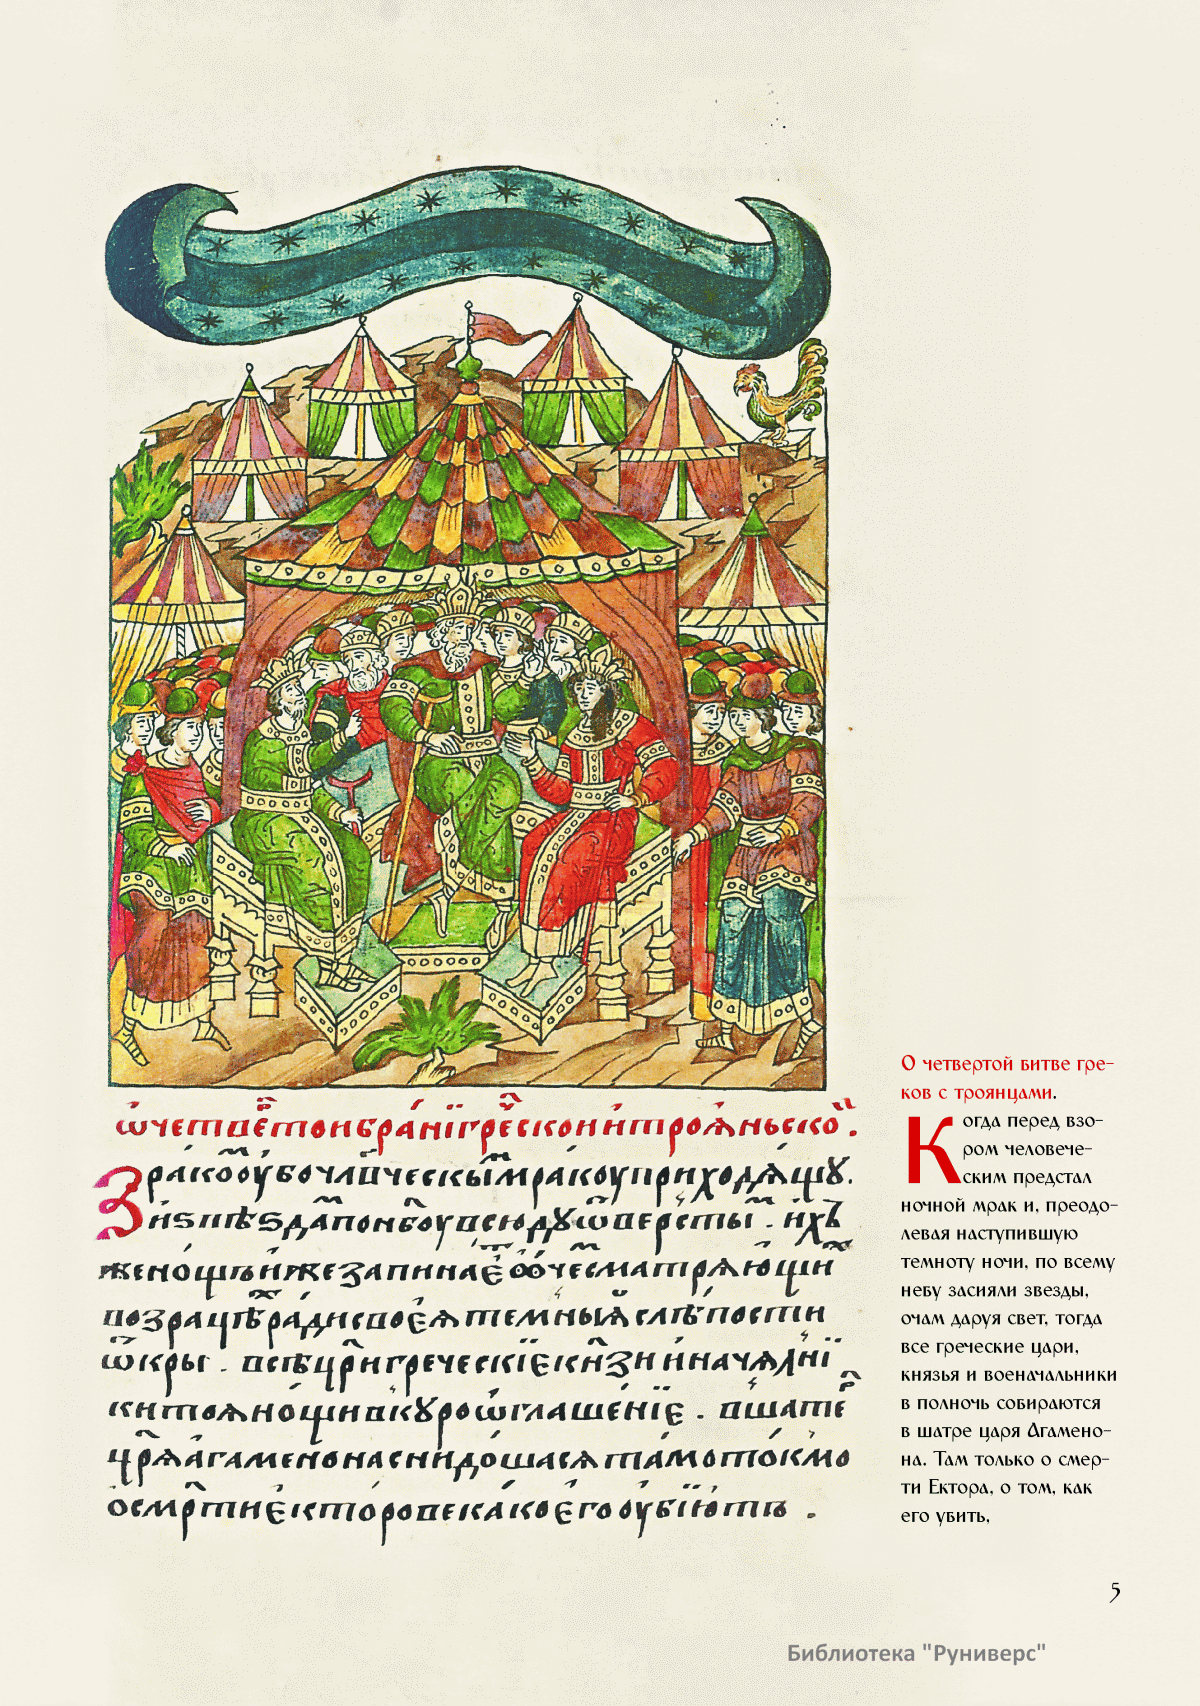 ѡ четве́ртои бра́нї гре́ческои и троѧ́ньско.
Зрако́мъ оу́бо чл҃вческы́мъ мракоу приходѧ́щу.
и ѕвѣзда́мъ по нб҃оу всю́ду ѿверсты́мъ . и хъ
же но́щь и́же запина́ѐ ѻ҆чесма трѧ́ющи
возра цвѣ ра́ди своеѧ̀ те́мныѧ слѣ́пости
ѿкры . всѣ цр҃и гре́ческїѐ кн҃зи и нача́лнї
ки тоѧ́ но́щи вкупѣ ѡ҆глаше́нїѐ . в шате́р
цр҃ѧ а́гаменона снидо́шасѧ та́мо то́кмо
о см҃рти ѐкто́рове ка́ко ѐго оу҆бїю́ть .
О четвертой битве гре-
ков с троянцами.
Когда перед взо-
ром человече-
ским предстал
ночной мрак и, преодо-
левая наступившую
темноту ночи, по всему
небу засияли звезды,
очам даруя свет, тогда
все греческие цари,
князья и военачальники
в полночь собираются
в шатре царя Агамено-
на. Там только о смер-
ти Ектора, о том, как
его убить,
5
Библиотека "Руниверс"